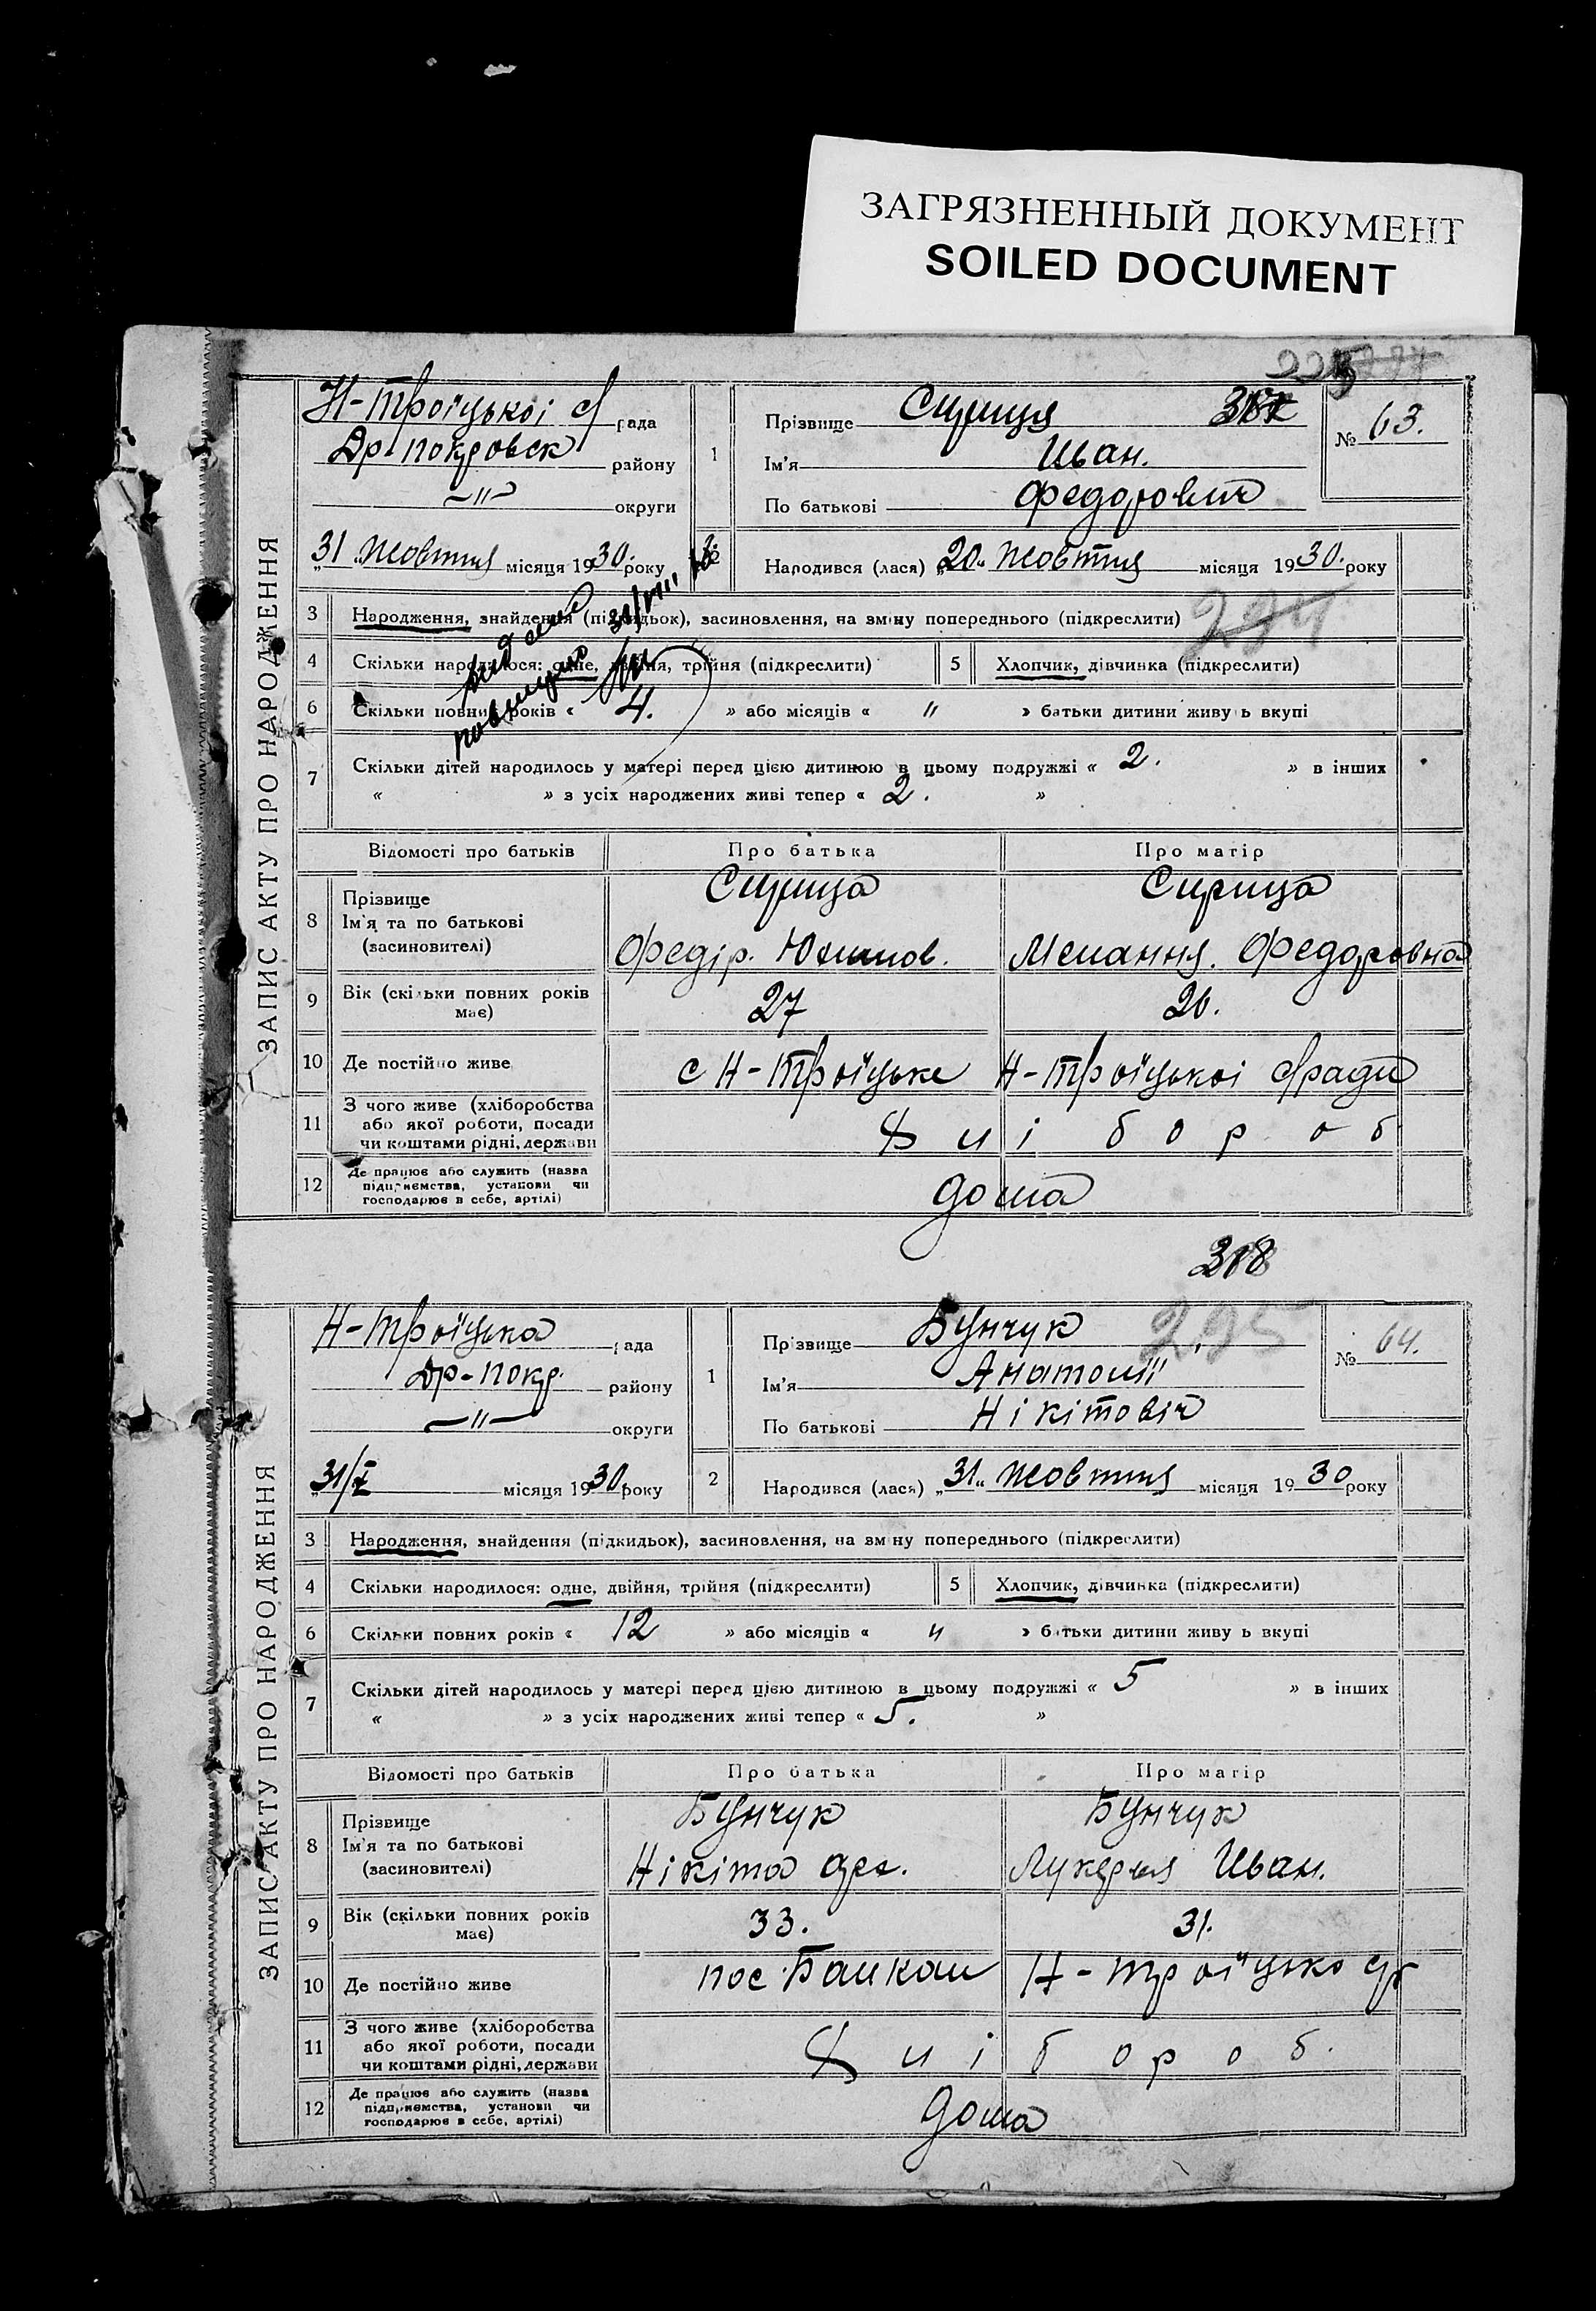 ЗАГРЯЗНЕННЫЙ ДОКУМЕНТ
SOILED DOCUMENT
ЗАПИС АКТУ ПРО НАРОДЖЕННЯ
Н-Троїцької с/ рада
Др-покровск району
—"— округи
„31" Жовтня місяця 1930. року
1
Прізвище
Ім'я Иван.
По батькові Федорович
№ 63.
Народився (лася) „20" Жовтня місяця 1930. року
294
3 Народження, знайдення (підкидьок), засиновлення, на зміну попереднього (підкреслити)
4 Скільки народилося: одне, двійня, трійня (підкреслити) 5 Хлопчик, дівчинка (підкреслити)
6 Скільки повних років « 4. » або місяців « " » батьки дитини живуть вкупі
7 Скільки дітей народилось у матері перед цією дитиною в цьому подружжі « 2. » в інших
« » з усіх народжених живі тепер « 2. »
Відомості про батьків Про батька Про матір
8 Прізвище
Ім'я та по батькові
(засиновителі)
Федір. Мелання. Федоровна
9 Вік (скільки повних років має) 27 26.
10 Де постійно живе с Н-Троїцьке Н-Троїцької с/ради
11 З чого живе (хліборобства
або якої роботи, посади
чи коштами рідні, держави
Хлібороб
12 Де працює або служить (назва
підприємства, установи чи
господарює в себе, артілі)
дома
318
ЗАПИС АКТУ ПРО НАРОДЖЕННЯ
Н-Троїцька рада
Др-покр. району
—"— округи
„31/X місяця 1930 року
1
Прізвище Бунчук
295
Ім'я Анатолій
По батькові Нікітовіч
№ 64.
2 Народився (лася) „31" Жовтня місяця 1930 року
3 Народження, знайдення (підкидьок), засиновлення, на зміну попереднього (підкреслити)
4 Скільки народилося: одне, двійня, трійня (підкреслити) 5 Хлопчик, дівчинка (підкреслити)
6 Скільки повних років « 12 » або місяців « " » батьки дитини живуть вкупі
7 Скільки дітей народилось у матері перед цією дитиною в цьому подружжі « 5 » в інших
« » з усіх народжених живі тепер « 5. »
Відомості про батьків Про батька Про матір
8 Прізвище
Ім'я та по батькові
(засиновителі)
Бунчук Бунчук
Нікіта Лукерья Иван.
9 Вік (скільки повних років має) 33. 31.
10 Де постійно живе пос. Балкан Н-Троїцько
11 З чого живе (хліборобства
або якої роботи, посади
чи коштами рідні, держави
Хлібороб.
12 Де працює або служить (назва
підприємства, установи чи
господарює в себе, артілі)
дома